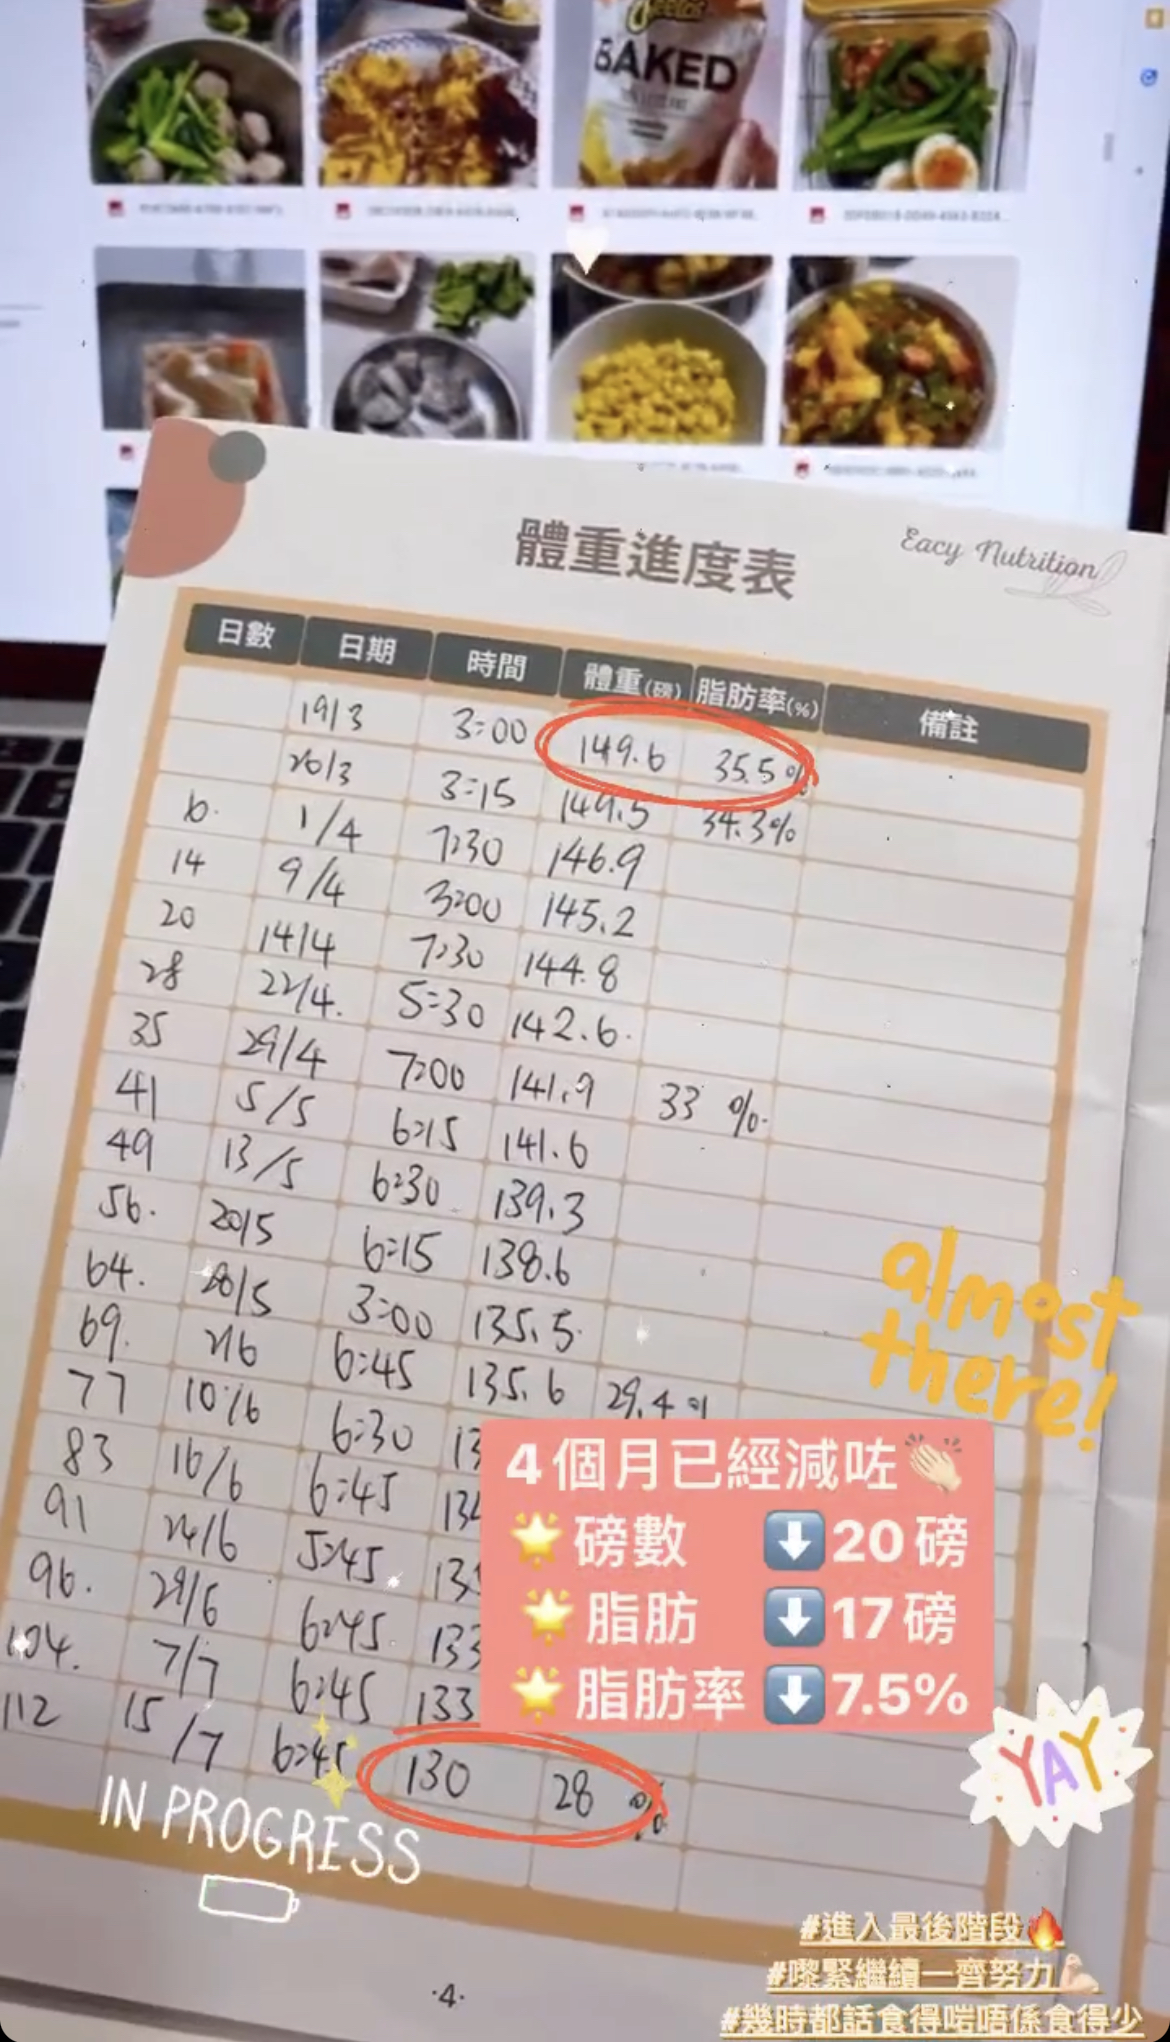 BAKED
體重進度表
Eacy Nutrition
日數 日期 時間 體重(磅) 脂肪率(%) 備註
19/3 3:00 149.6 35.5%
26/3 3:15 149.5 34.3%
6. 1/4 7:30 146.9
14 9/4 3:00 145.2
20 14/4 7:30 144.8
28 22/4. 5:30 142.6.
35 29/4 7:00 141.9 33 %.
41 5/5 6:15 141.6
49 13/5 6:30 139.3
56. 20/5 6:15 138.6
64. 28/5 3:00 135.5.
69. 2/6 6:45 135.6 29.4
77 10/6 6:30 13
83 16/6 6:45 134
91 24/6 5:45 13
96. 29/6 6:45 133
104. 7/7 6:45 133
112 15/7 6:45 130 28 %
almost
there!
4個月已經減咗👏🏻
🌟磅數 ⬇️20磅
🌟脂肪 ⬇️17磅
🌟脂肪率 ⬇️7.5%
YAY
IN PROGRESS
#進入最後階段🔥
#嚟緊繼續一齊努力💪🏻
#幾時都話食得啱唔係食得少
·4·